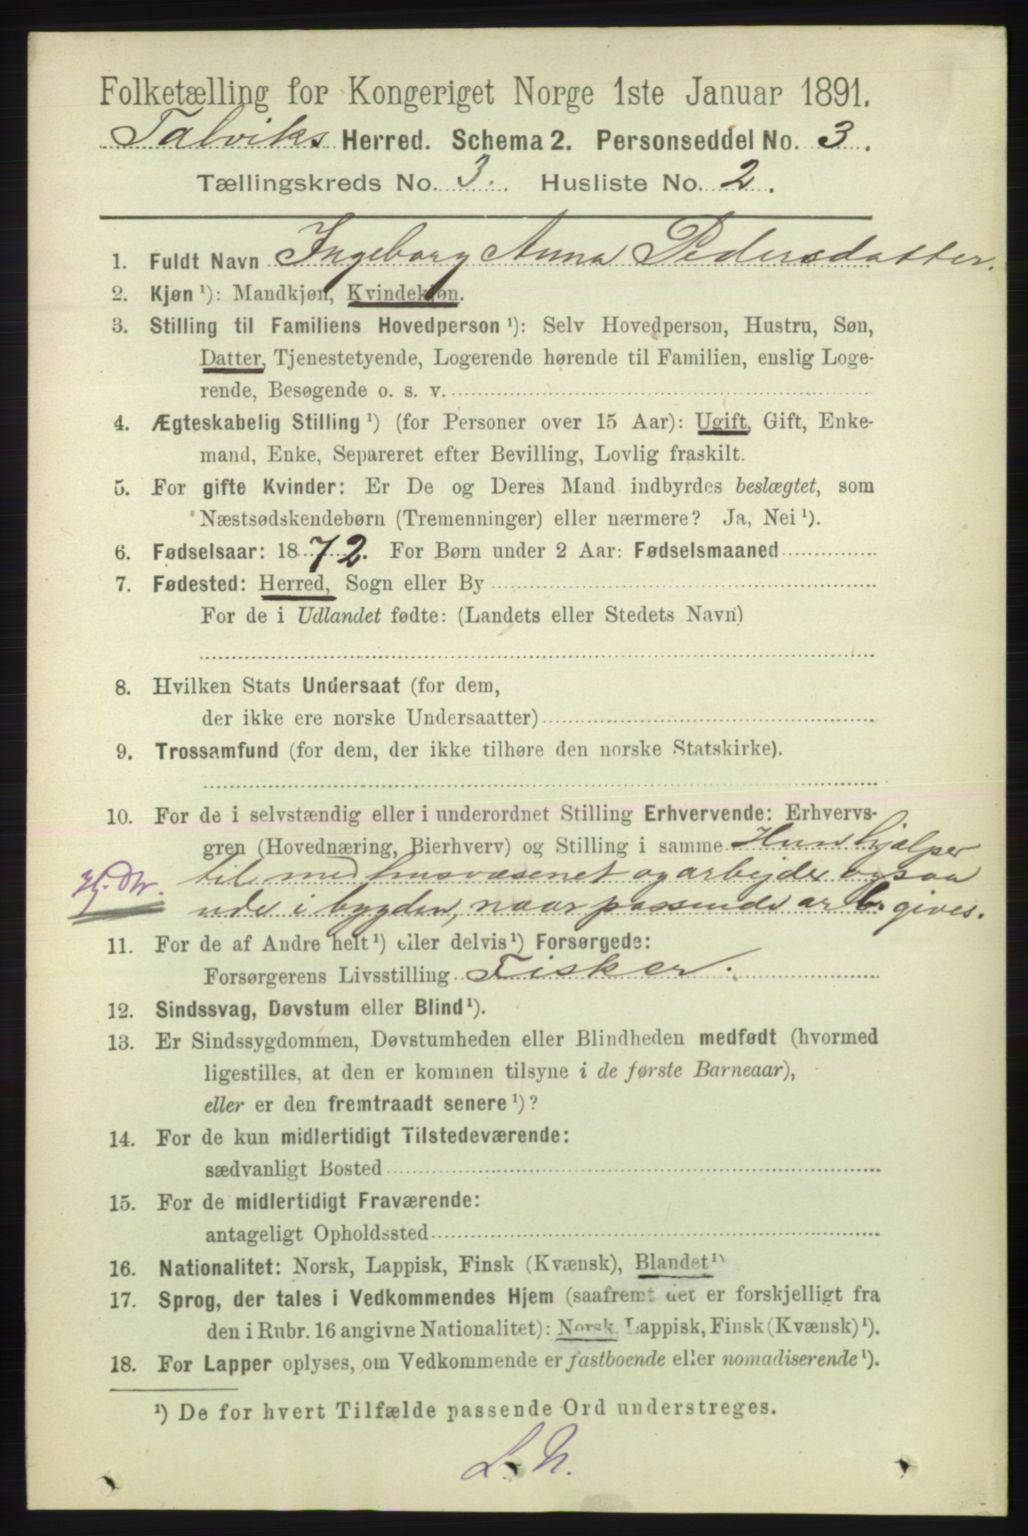 Folketælling for Kongeriget Norge 1ste Januar 1891.
Talviks Herred. Schema 2. Personseddel No. 3.
Tællingskreds No. 3. Husliste No. 2.
1. Fuldt Navn Ingeborg Anna Pedersdatter.
2. Kjøn ¹): Mandkjøn, Kvindekjøn.
3. Stilling til Familiens Hovedperson ¹): Selv Hovedperson, Hustru, Søn,
Datter, Tjenestetyende, Logerende hørende til Familien, enslig Loge-
rende, Besøgende o. s. v.
4. Ægteskabelig Stilling ¹) (for Personer over 15 Aar): Ugift, Gift, Enke-
mand, Enke, Separeret efter Bevilling, Lovlig fraskilt.
5. For gifte Kvinder: Er De og Deres Mand indbyrdes beslægtet, som
Næstsødskendebørn (Tremenninger) eller nærmere? Ja, Nei ¹).
6. Fødselsaar: 1872. For Børn under 2 Aar: Fødselsmaaned
7. Fødested: Herred, Sogn eller By
For de i Udlandet fødte: (Landets eller Stedets Navn)
8. Hvilken Stats Undersaat (for dem,
der ikke ere norske Undersaatter)
9. Trossamfund (for dem, der ikke tilhøre den norske Statskirke).
10. For de i selvstændig eller i underordnet Stilling Erhvervende: Erhvervs-
gren (Hovednæring, Bierhverv) og Stilling i samme Hun hjælper
til med husvæsenet og arbejder ogsaa
ude i bygden, naar passende arb. gives.
11. For de af Andre helt ¹) eller delvis ¹) Forsørgede:
Forsørgerens Livsstilling Fisker.
12. Sindssvag, Døvstum eller Blind ¹).
13. Er Sindssygdommen, Døvstumheden eller Blindheden medfødt (hvormed
ligestilles, at den er kommen tilsyne i de første Barneaar),
eller er den fremtraadt senere ¹)?
14. For de kun midlertidigt Tilstedeværende:
sædvanligt Bosted
15. For de midlertidigt Fraværende:
antageligt Opholdssted
16. Nationalitet: Norsk, Lappisk, Finsk (Kvænsk), Blandet ¹)
17. Sprog, der tales i Vedkommendes Hjem (saafremt det er forskjelligt fra
den i Rubr. 16 angivne Nationalitet): Norsk, Lappisk, Finsk (Kvænsk) ¹).
18. For Lapper oplyses, om Vedkommende er fastboende eller nomadiserende ¹).
¹) De for hvert Tilfælde passende Ord understreges.
L. N.